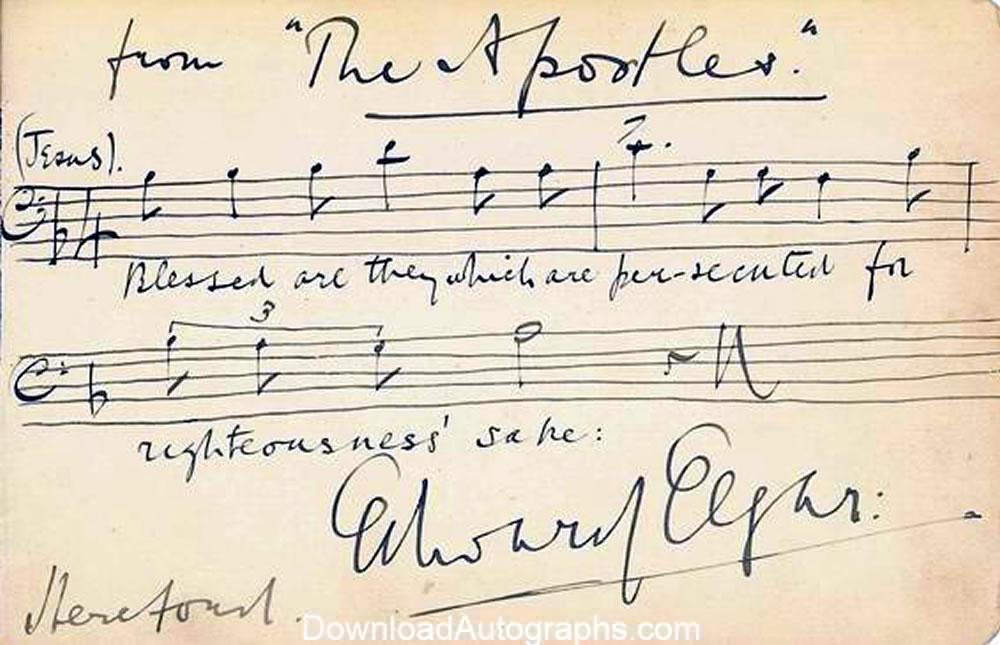 from "The Apostles."
(Jesus).
Blessed are they which are per-secuted for
3
righteousness' sake:
Edward Elgar:
Hereford.
DownloadAutographs.com